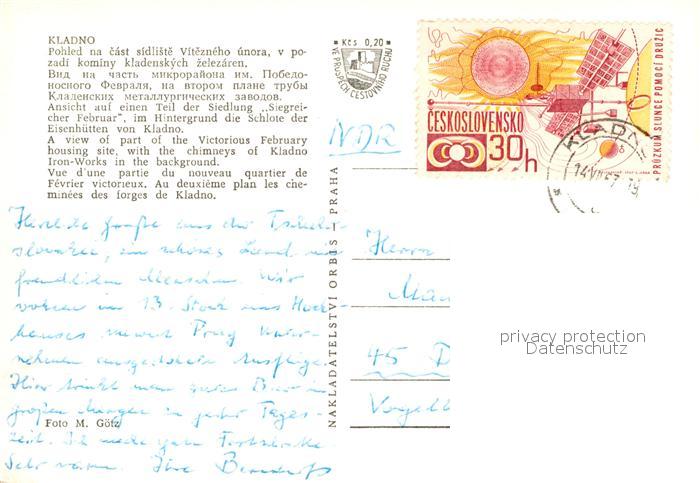 KLADNO
Pohled na část sídliště Vítězného února, v po-
zadí komíny kladenských železáren.
Вид на часть микрорайона им. Победо-
носного Февраля, на втором плане трубы
Кладенских металлургических заводов.
Ansicht auf einen Teil der Siedlung „Siegrei-
cher Februar", im Hintergrund die Schlote der
Eisenhütten von Kladno.
A view of part of the Victorious February
housing site, with the chimneys of Kladno
Iron-Works in the background.
Vue d'une partie du nouveau quartier de
Février victorieux. Au deuxième plan les che-
minées des forges de Kladno.
Herzliche Grüße aus der Tschecho-
slowakei, ein schönes Land mit
freundlichen Menschen. Wir
wohnen im 13. Stock eines Hoch-
hauses unweit Prag
ausgedehnte Ausflüge.
Hier trinkt man gutes Bier in
großen Mengen zu jeder Tages-
zeit. Ich mache gute Fortschritte.
Foto M. Götz
Kčs 0,20
VE PROSPĚCH CESTOVNÍHO RUCHU
NAKLADATELSTVÍ ORBIS – PRAHA
ČESKOSLOVENSKO
30h
PRŮZKUM SLUNCE POMOCÍ DRUŽIC
KLADNO
NDR
Herrn
45 D
privacy protection
Datenschutz